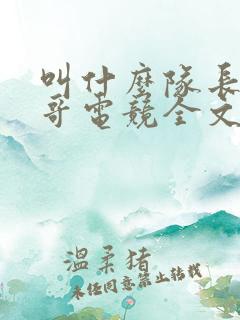 叫什麼隊長
哥電競全文
溫柔豬
未经同意禁止转载